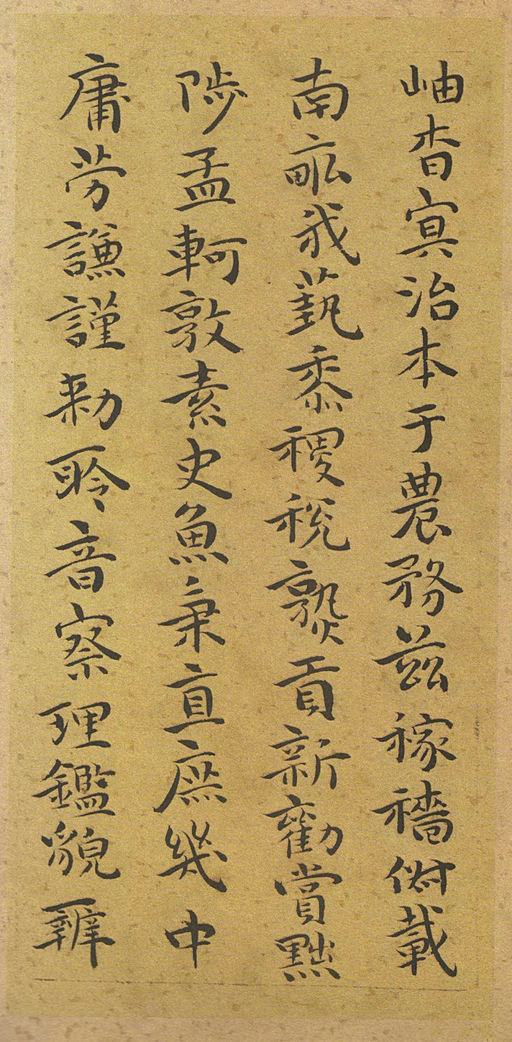 岫杳冥治本于農務茲稼穡俶載
南畝我蓺黍稷稅熟貢新勸賞黜
陟孟軻敦素史魚秉直庶幾中
庸勞謙謹勑聆音察理鑑貌辨